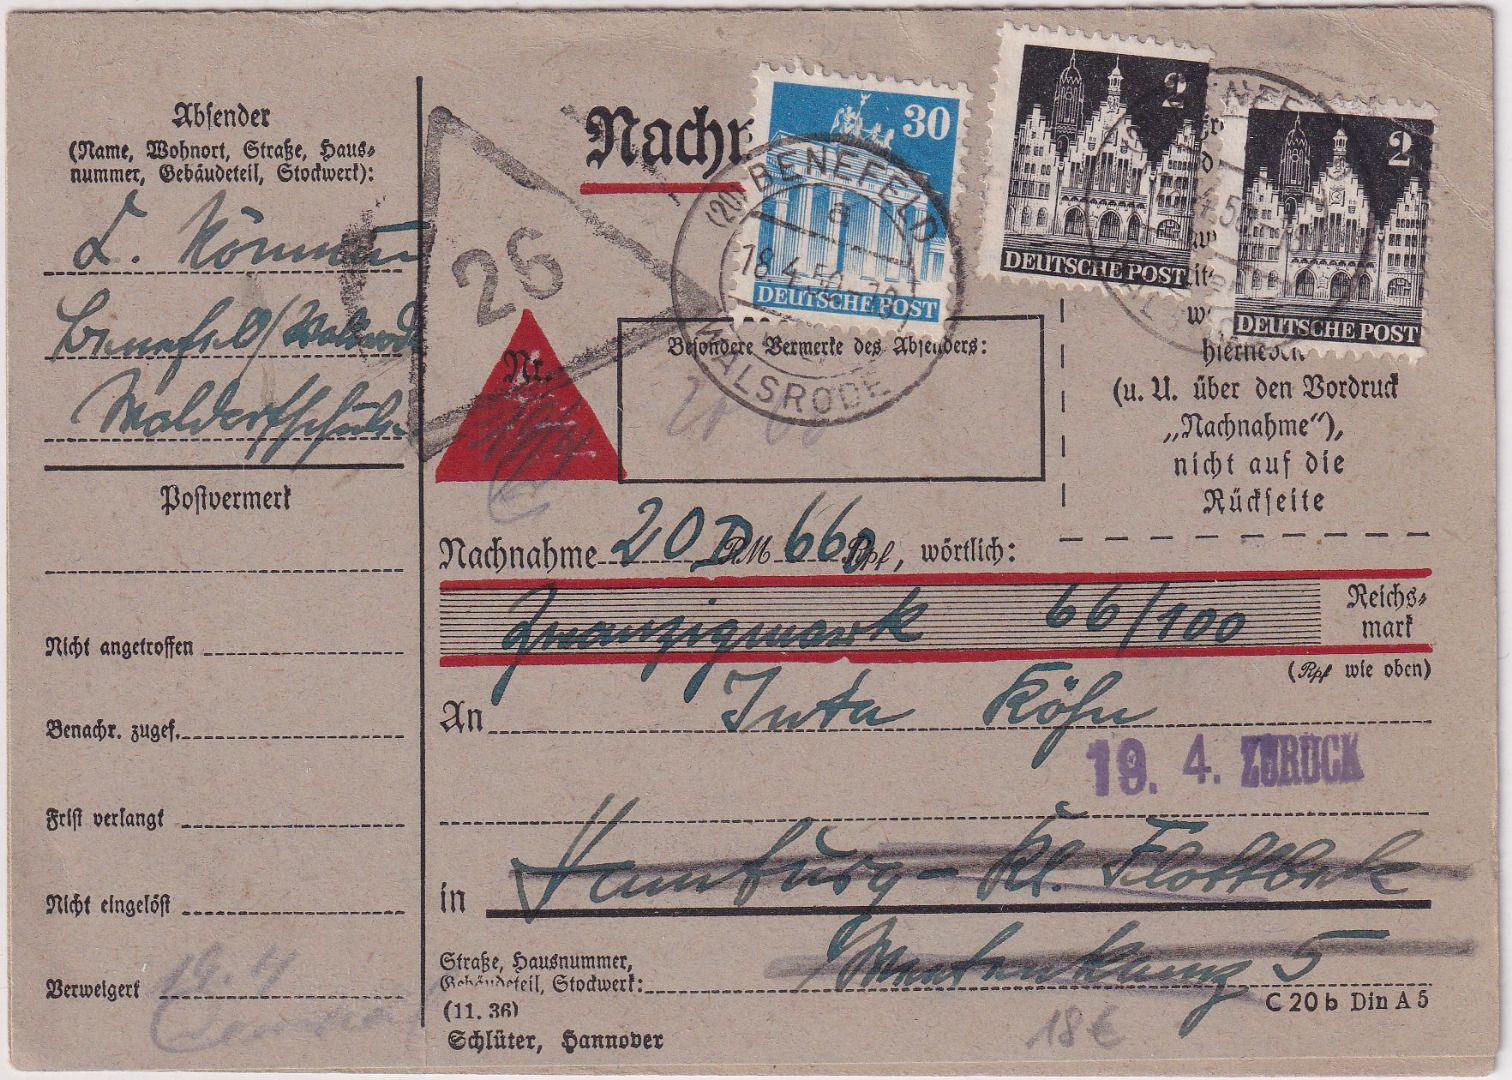 Absender
(Name, Wohnort, Straße, Haus-
nummer, Gebäudeteil, Stockwerk):
L.
Benefeld/Walsrode
Postvermerk
Nicht angetroffen
Benachr. zugef.
Frist verlangt
Nicht eingelöst
Verweigert
19.4
Nachn
26
Nr.
30
DEUTSCHE POST
2
DEUTSCHE POST
2
DEUTSCHE POST
(20) BENEFELD
a
18.4.50
WALSRODE
Besondere Vermerke des Absenders:
hierneben
(u. U. über den Vordruck
„Nachnahme"),
nicht auf die
Rückseite
Nachnahme 20 D RM 66 Rpf, wörtlich:
Zwanzigmark 66/100
Reichs-
mark
(Rpf wie oben)
An Juta Köhn
19. 4. ZURÜCK
in Hamburg - Kl. Flottbek
5
Straße, Hausnummer,
Gebäudeteil, Stockwerk:
(11. 36)
C 20 b Din A 5
Schlüter, Hannover
18 €